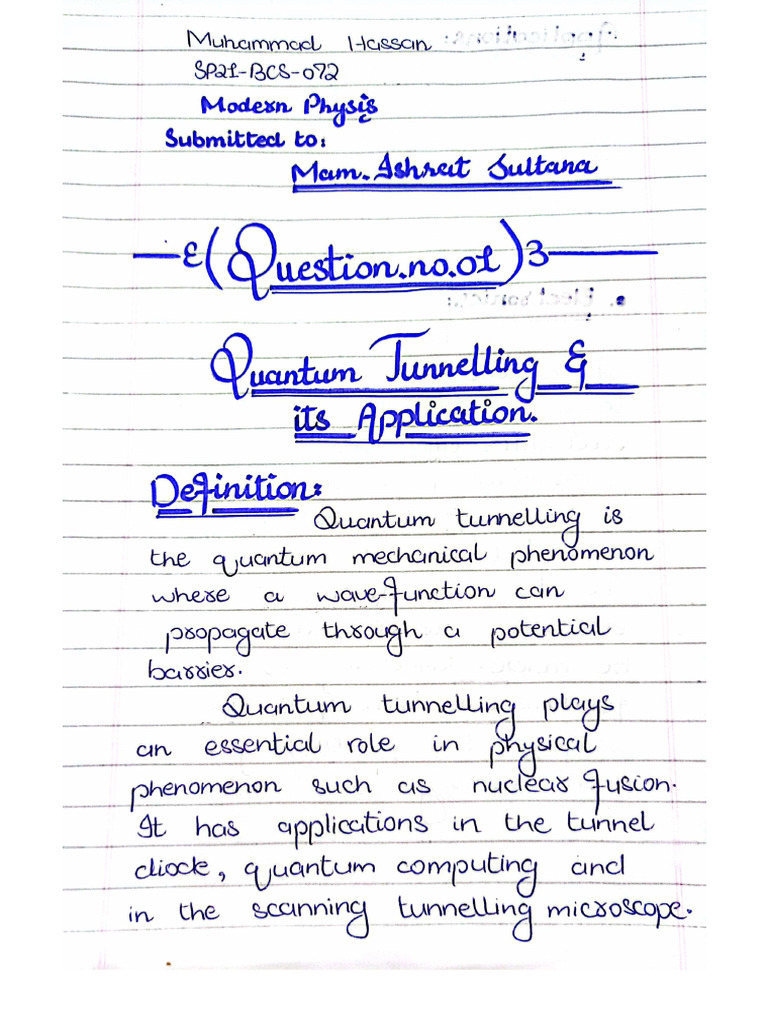 Muhammad Hassan
SP21-BCS-072
Modern Physis
Submitted to:
Mam. Ishrat Sultana
Question.no.01
Quantum Tunnelling &
its Application.
Definition:
Quantum tunnelling is
the quantum mechanical phenomenon
where a wave-function can
propagate through a potential
barrier.
Quantum tunnelling plays
an essential role in physical
phenomenon such as nuclear fusion.
It has applications in the tunnel
diode, quantum computing and
in the scanning tunnelling microscope.